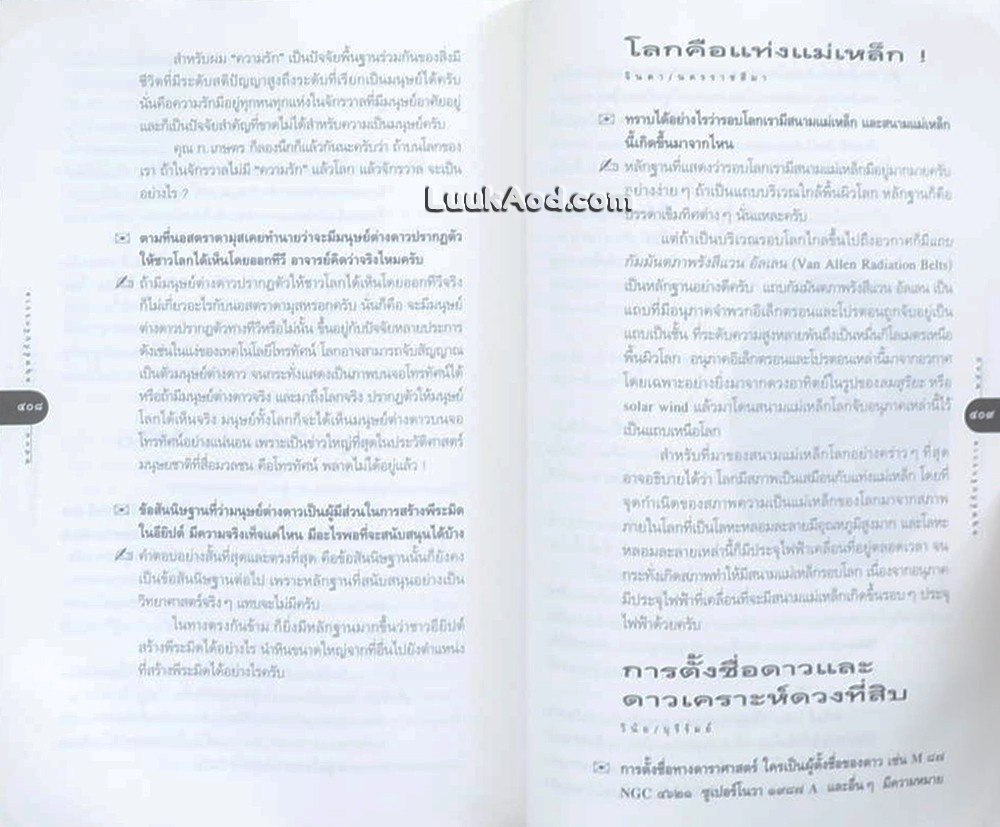 สำหรับผม "ความรัก" เป็นปัจจัยพื้นฐานร่วมกันของสิ่งมี
ชีวิตที่มีระดับสติปัญญาสูงถึงระดับที่เรียกเป็นมนุษย์ได้ครับ
นั่นคือความรักมีอยู่ทุกหนทุกแห่งในจักรวาลที่มีมนุษย์อาศัยอยู่
และก็เป็นปัจจัยสำคัญที่ขาดไม่ได้สำหรับความเป็นมนุษย์ครับ
คุณ ก.เกษตร ก็ลองนึกก็แล้วกันนะครับว่า ถ้าบนโลกของ
เรา ถ้าในจักรวาลไม่มี "ความรัก" แล้วโลก แล้วจักรวาล จะเป็น
อย่างไร ?
ตามที่นอสตราดามุสเคยทำนายว่าจะมีมนุษย์ต่างดาวปรากฏตัว
ให้ชาวโลกได้เห็นโดยออกทีวี อาจารย์คิดว่าจริงไหมครับ
ถ้ามีมนุษย์ต่างดาวปรากฏตัวให้ชาวโลกได้เห็นโดยออกทีวีจริง
ก็ไม่เกี่ยวอะไรกับนอสตราดามุสหรอกครับ นั่นก็คือ จะมีมนุษย์
ต่างดาวปรากฏตัวทางทีวีหรือไม่นั้น ขึ้นอยู่กับปัจจัยหลายประการ
ดังเช่นในแง่ของเทคโนโลยีโทรทัศน์ โลกอาจสามารถจับสัญญาณ
เป็นตัวมนุษย์ต่างดาว จนกระทั่งแสดงเป็นภาพบนจอโทรทัศน์ได้
หรือถ้ามีมนุษย์ต่างดาวจริง และมาถึงโลกจริง ปรากฏตัวให้มนุษย์
โลกได้เห็นจริง มนุษย์ทั้งโลกก็จะได้เห็นมนุษย์ต่างดาวบนจอ
โทรทัศน์อย่างแน่นอน เพราะเป็นข่าวใหญ่ที่สุดในประวัติศาสตร์
มนุษยชาติที่สื่อมวลชน คือโทรทัศน์ พลาดไม่ได้อยู่แล้ว !
ข้อสันนิษฐานที่ว่ามนุษย์ต่างดาวเป็นผู้มีส่วนในการสร้างพีระมิด
ในอียิปต์ มีความจริงเท็จแค่ไหน มีอะไรพอที่จะสนับสนุนได้บ้าง
คำตอบอย่างสั้นที่สุดและตรงที่สุด คือข้อสันนิษฐานนั้นก็ยังคง
เป็นข้อสันนิษฐานต่อไป เพราะหลักฐานที่สนับสนุนอย่างเป็น
วิทยาศาสตร์จริงๆ แทบจะไม่มีครับ
ในทางตรงกันข้าม ก็ยิ่งมีหลักฐานมากขึ้นว่าชาวอียิปต์
สร้างพีระมิดได้อย่างไร นำหินขนาดใหญ่จากที่อื่นไปยังตำแหน่ง
ที่สร้างพีระมิดได้อย่างไรครับ
๔๐๘
LuukAod.com
โลกคือแท่งแม่เหล็ก !
จินตา/นครราชสีมา
ทราบได้อย่างไรว่ารอบโลกเรามีสนามแม่เหล็ก และสนามแม่เหล็ก
นี้เกิดขึ้นมาจากไหน
หลักฐานที่แสดงว่ารอบโลกเรามีสนามแม่เหล็กมีอยู่มากมายครับ
อย่างง่ายๆ ถ้าเป็นแถบบริเวณใกล้พื้นผิวโลก หลักฐานก็คือ
บรรดาเข็มทิศต่างๆ นั่นแหละครับ
แต่ถ้าเป็นบริเวณรอบโลกไกลขึ้นไปถึงอวกาศก็มีแถบ
กัมมันตภาพรังสีแวน อัลเลน (Van Allen Radiation Belts)
เป็นหลักฐานอย่างดีครับ แถบกัมมันตภาพรังสีแวน อัลเลน เป็น
แถบที่มีอนุภาคจำพวกอิเล็กตรอนและโปรตอนถูกจับอยู่เป็น
แถบเป็นชั้น ที่ระดับความสูงหลายพันถึงเป็นหมื่นกิโลเมตรเหนือ
พื้นผิวโลก อนุภาคอิเล็กตรอนและโปรตอนเหล่านี้มาจากอวกาศ
โดยเฉพาะอย่างยิ่งมาจากดวงอาทิตย์ในรูปของลมสุริยะ หรือ
solar wind แล้วมาโดนสนามแม่เหล็กโลกจับอนุภาคเหล่านี้ไว้
เป็นแถบเหนือโลก
สำหรับที่มาของสนามแม่เหล็กโลกอย่างคร่าวๆ ที่สุด
อาจอธิบายได้ว่า โลกมีสภาพเป็นเสมือนกับแท่งแม่เหล็ก โดยที่
จุดกำเนิดของสภาพความเป็นแม่เหล็กของโลกมาจากสภาพ
ภายในโลกที่เป็นโลหะหลอมละลายมีอุณหภูมิสูงมาก และโลหะ
หลอมละลายเหล่านี้ก็มีประจุไฟฟ้าเคลื่อนที่อยู่ตลอดเวลา จน
กระทั่งเกิดสภาพทำให้มีสนามแม่เหล็กรอบโลก เนื่องจากอนุภาค
มีประจุไฟฟ้าที่เคลื่อนที่จะมีสนามแม่เหล็กเกิดขึ้นรอบๆ ประจุ
ไฟฟ้าด้วยครับ
การตั้งชื่อดาวและ
ดาวเคราะห์ดวงที่สิบ
วินัย/บุรีรัมย์
การตั้งชื่อทางดาราศาสตร์ ใครเป็นผู้ตั้งชื่อของดาว เช่น M ๘๗
NGC ๔๖๒๑ ซูเปอร์โนวา ๑๙๘๗ A และอื่นๆ มีความหมาย
๔๐๙